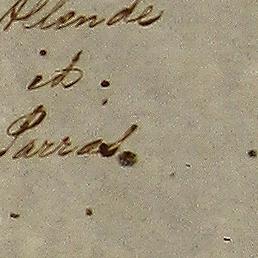 Allende
id.
Parras